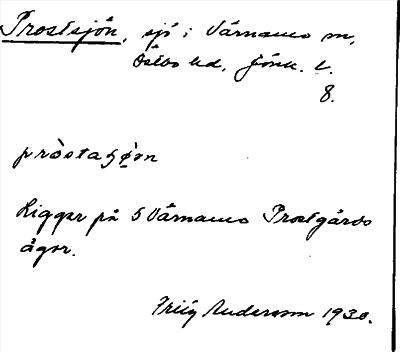 Prostsjön, sjö i Värnamo sn,
Östbo hd, Jönk. l.
8.
pròstaʃø̀n
Ligger på Värnamo Prostgårds
ägor.
Andersson 1930.